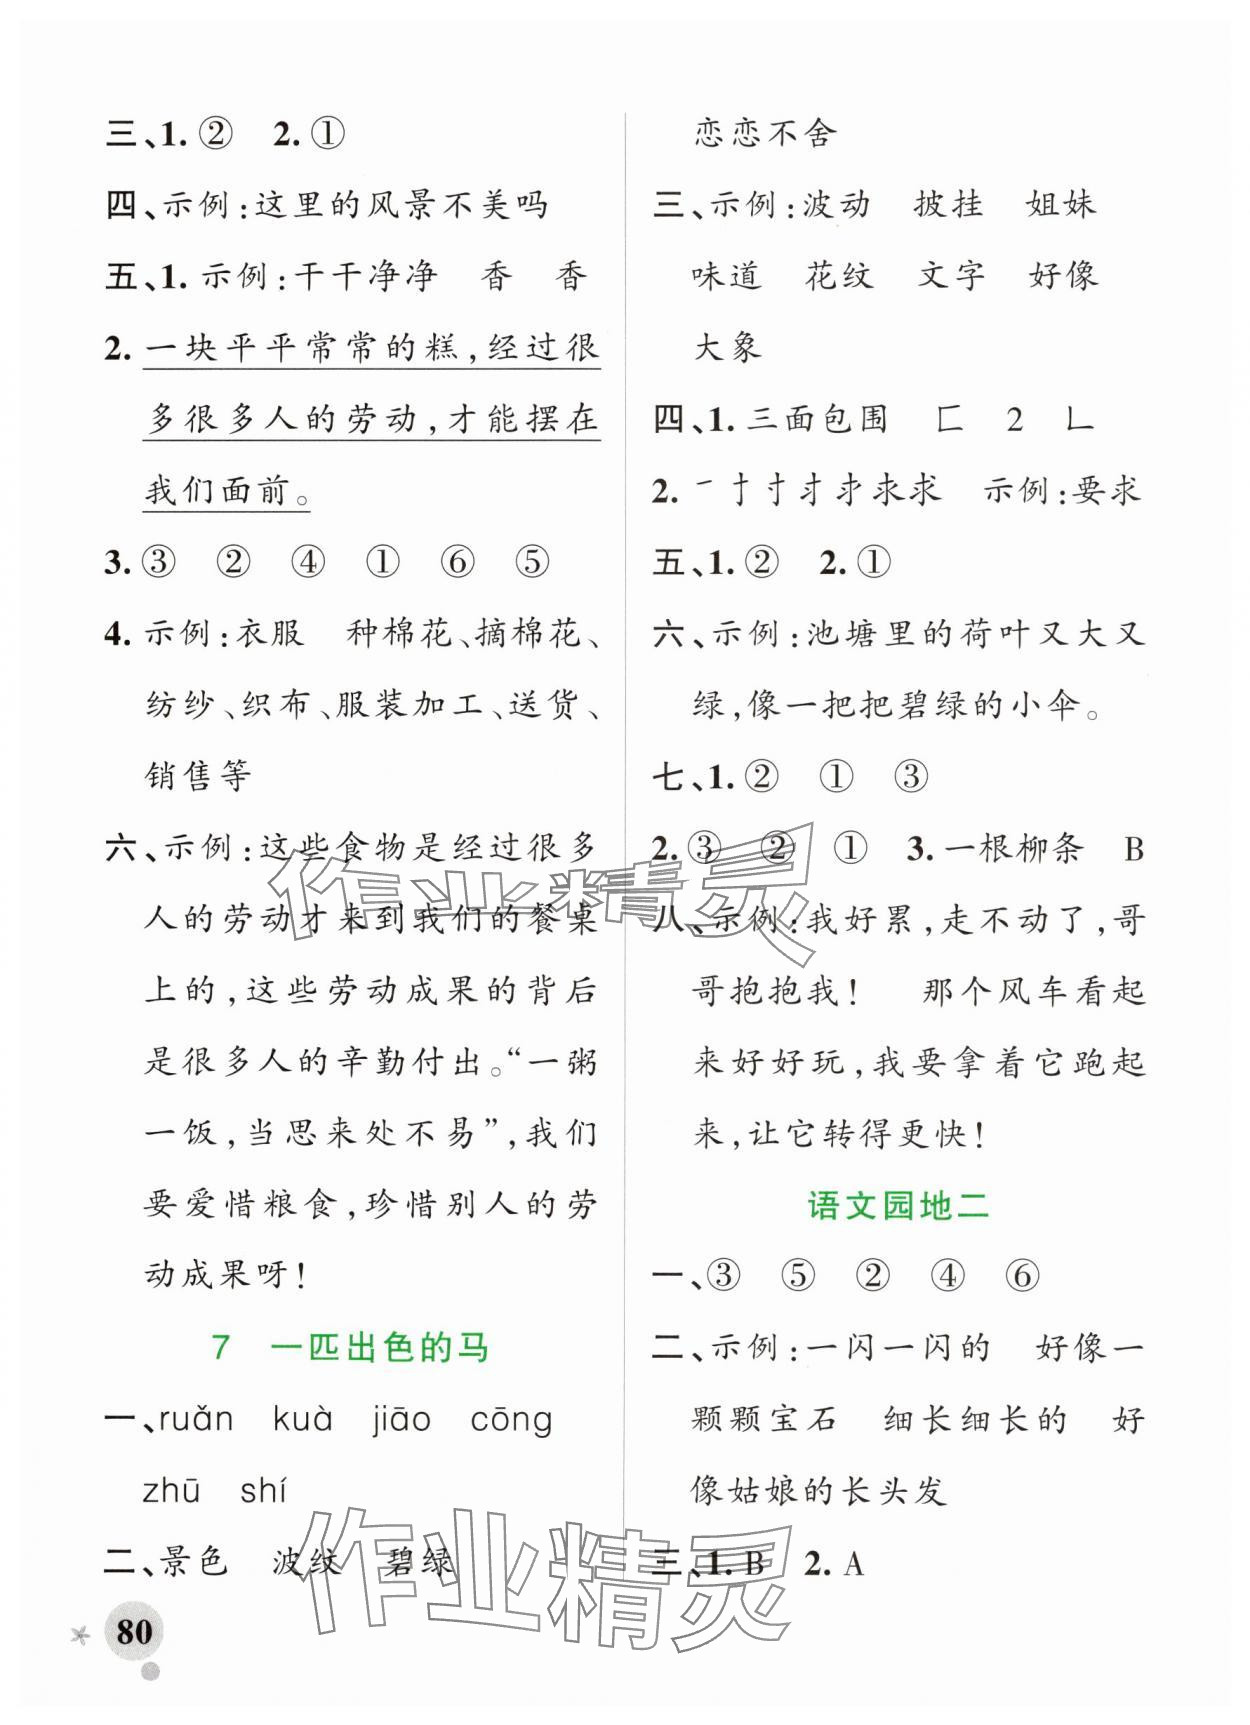 三、1.② 2.①
四、示例:这里的风景不美吗
五、1. 示例:干干净净 香 香
2. 一块平平常常的糕,经过很
多很多人的劳动,才能摆在
我们面前。
3.③ ② ④ ① ⑥ ⑤
4. 示例:衣服 种棉花、摘棉花、
纺纱、织布、服装加工、送货、
销售等
六、示例:这些食物是经过很多
人的劳动才来到我们的餐桌
上的,这些劳动成果的背后
是很多人的辛勤付出。“一粥
一饭,当思来处不易”,我们
要爱惜粮食,珍惜别人的劳
动成果呀!
7 一匹出色的马
一、ruǎn kuà jiāo cōng
zhū shí
二、景色 波纹 碧绿
80
恋恋不舍
三、示例:波动 披挂 姐妹
味道 花纹 文字 好像
大象
四、1. 三面包围 匚 2 𠃊
2. 示例:要求
五、1.② 2.①
六、示例:池塘里的荷叶又大又
绿,像一把把碧绿的小伞。
七、1.② ① ③
2.③ ② ① 3. 一根柳条 B
八、示例:我好累,走不动了,哥
哥抱抱我! 那个风车看起
来好好玩,我要拿着它跑起
来,让它转得更快!
语文园地二
一、③ ⑤ ② ④ ⑥
二、示例:一闪一闪的 好像一
颗颗宝石 细长细长的 好
像姑娘的长头发
三、1. B 2. A
作业精灵
作业精灵